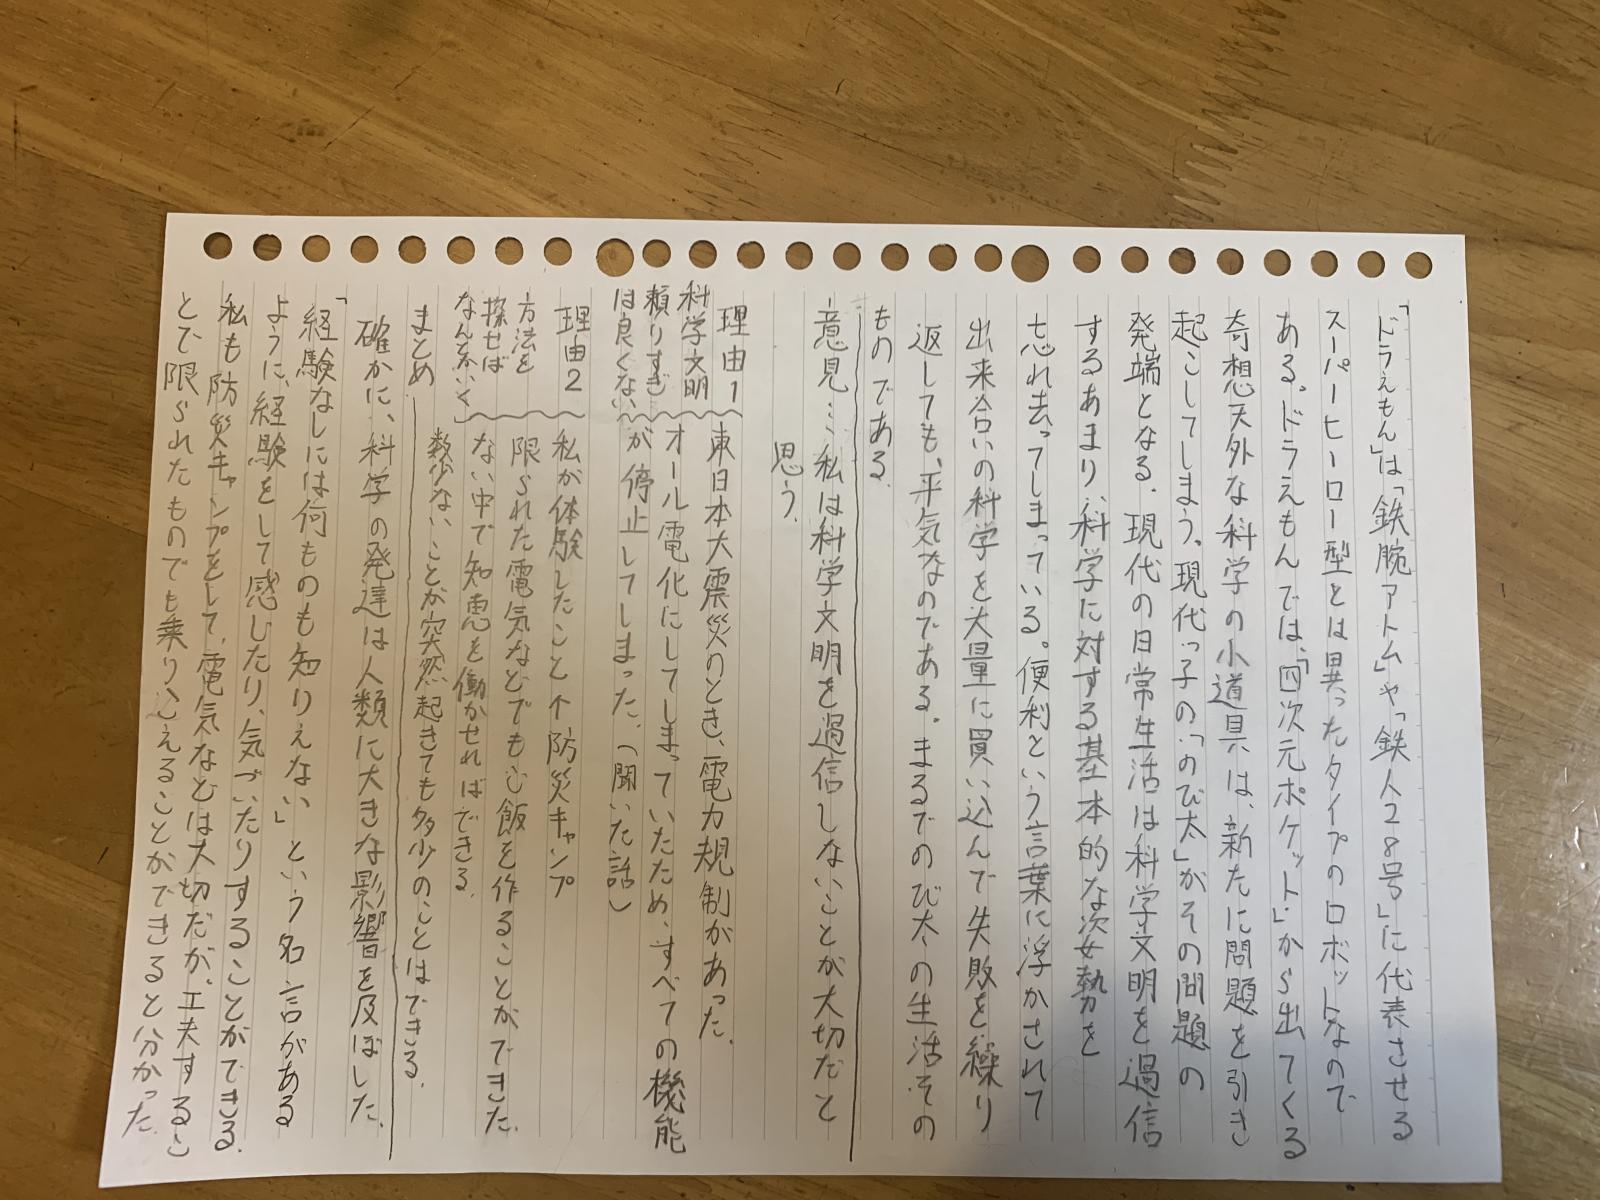 「ドラえもん」は「鉄腕アトム」や「鉄人28号」に代表させる
スーパーヒーロー型とは異ったタイプのロボットなので
ある。ドラえもんでは、「四次元ポケット」から出てくる
奇想天外な科学の小道具は、新たに問題を引き
起こしてしまう。現代っ子の「のび太」がその問題の
発端となる。現代の日常生活は科学文明を過信
するあまり、科学に対する基本的な姿勢を
忘れ去ってしまっている。便利という言葉に浮かされて
出来合いの科学を大量に買い込んで失敗を繰り
返しても、平気なのである。まるでのび太の生活その
ものである。
意見…私は科学文明を過信しないことが大切だと
思う。
理由1
科学文明
頼りすぎ
は良くない
東日本大震災のとき、電力規制があった。
オール電化にしてしまっていたため、すべての機能
が停止してしまった。(聞いた話)
理由2
方法を
探せば
なんなりいく
私が体験したこと 防災キャンプ
限られた電気などでもご飯を作ることができた
ない中で知恵を働かせればできる。
数少ないことが突然起きても多少のことはできる。
まとめ
確かに、科学の発達は人類に大きな影響を及ぼした。
「経験なしには何ものも知りえない」という名言がある
ように、経験をして感じたり、気づいたりすることができる。
私も防災キャンプをして、電気などは大切だが、工夫するこ
とで限られたものでも乗りこえることができると分かった。